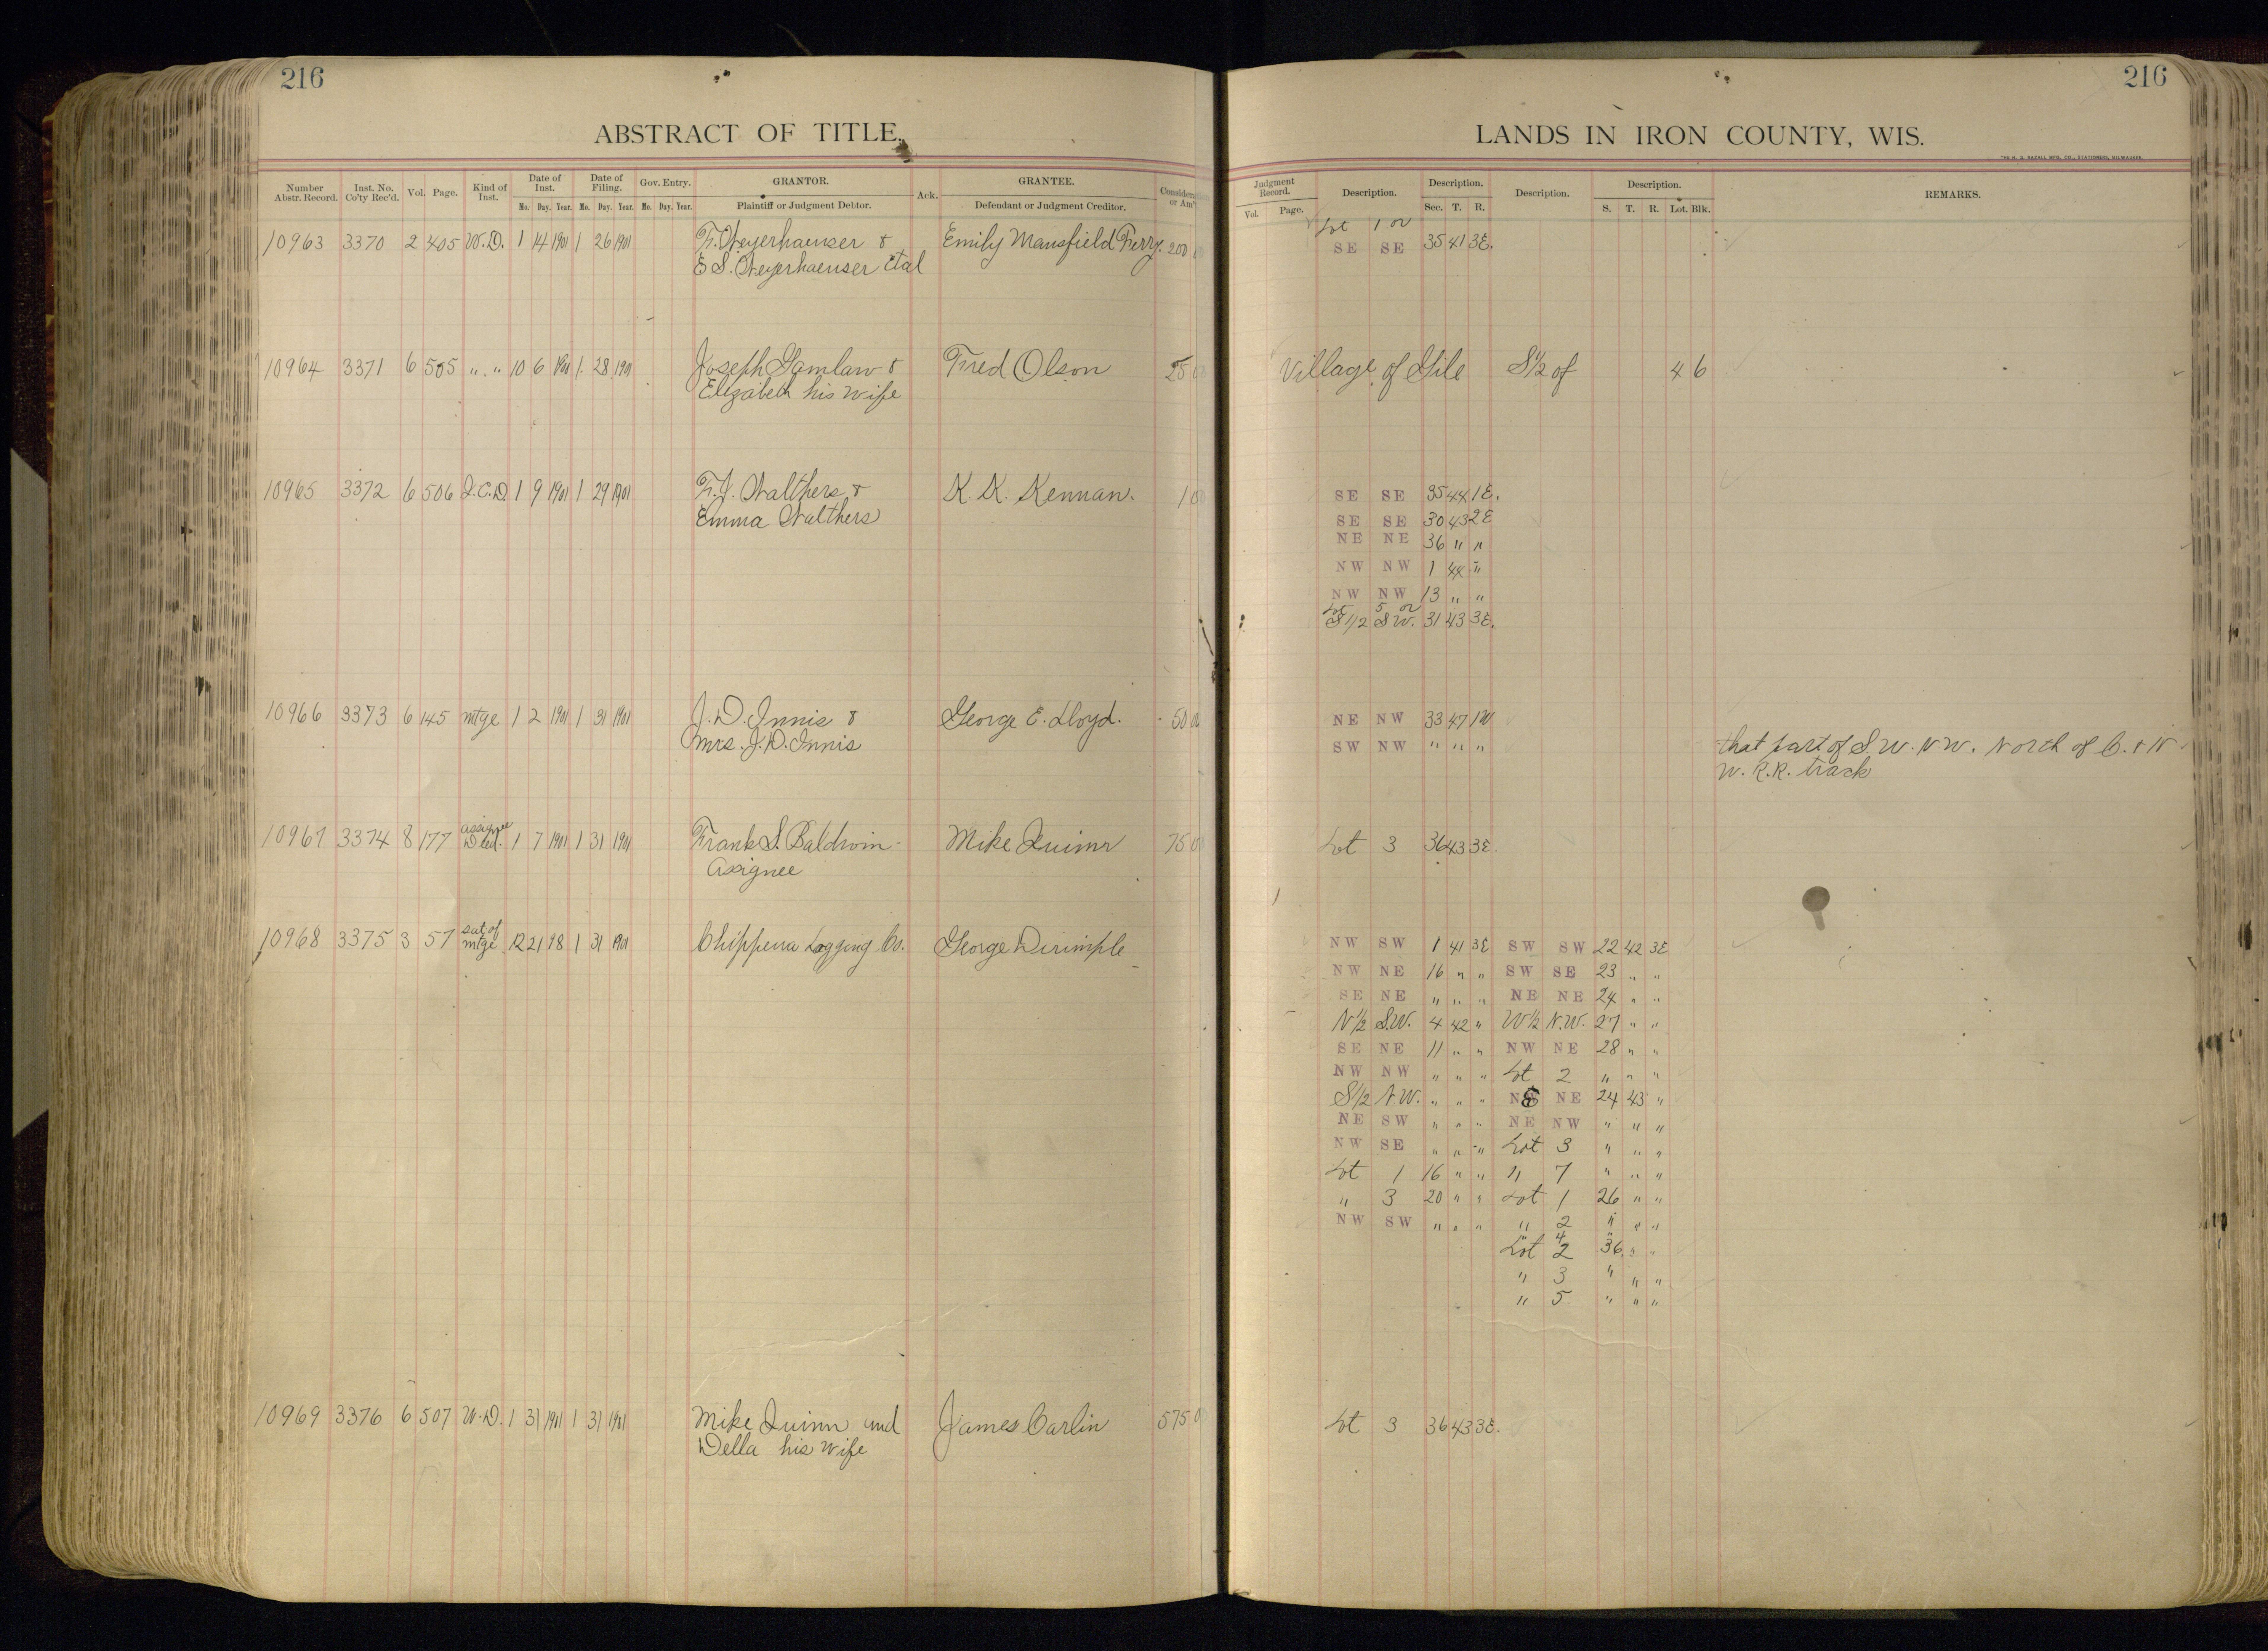 216
ABSTRACT OF TITLE.
Number Abstr. Record. Inst. No. Co'ty Rec'd. Vol. Page. Kind of Inst. Date of Inst. Mo. Day. Year. Date of Filing. Mo. Day. Year. Gov. Entry. Mo. Day. Year. GRANTOR. Plaintiff or Judgment Debtor. Ack. GRANTEE. Defendant or Judgment Creditor.
10963 3370 2 405 W.D. 1 14 1901 1 26 1901 F. Weyerhaeuser & Emily Mansfield Ferry. 200
E S. Weyerhaeuser etal
10964 3371 6 505 " " 10 6 1 28 1901 Joseph & Fred Olson 25
Elizabeth his wife
10965 3372 6 506 Q.C.D. 1 9 1901 1 29 1901 F.J. Walthers & K. K. Kennan. 1
Emma Walthers
10966 3373 6 145 mtge 1 2 1901 1 31 1901 J. D. Innis & George E. Lloyd. 50
Mrs. J. D. Innis
10967 3374 8 177 assignee Deed. 1 7 1901 1 31 1901 Frank S. Baldwin Mike Quinn 75
Assignee
10968 3375 3 57 sat of mtge 12 21 98 1 31 1901 Chippewa Logging Co. George Dirimple
10969 3376 6 507 W.D. 1 31 1901 1 31 1901 Mike Quinn and James Carlin 575
Della his wife
216
LANDS IN IRON COUNTY, WIS.
THE H. G. RAZALL MFG. CO., STATIONERS, MILWAUKEE.
Judgment Record. Vol. Page. Description. Description. Sec. T. R. Description. Description. S. T. R. Lot. Blk. REMARKS.
Lot 1 or
SE SE 35 41 3E.
Village of Gile S 1/2 of 4 6
SE SE 35 44 1E.
SE SE 30 43 2E
NE NE 36 " "
NW NW 1 44 "
NW NW 13 " "
Lot 5 or
S 1/2 SW. 31 43 3E.
NE NW 33 47 1W
SW NW " " " that part of S.W. N.W. North of C. & N
W. R.R. track
Lot 3 36 43 3E.
NW SW 1 41 3E SW SW 22 42 3E
NW NE 16 " " SW SE 23 " "
SE NE " " " NE NE 24 " "
N 1/2 S.W. 4 42 " W 1/2 N.W. 27 " "
SE NE 11 " " NW NE 28 " "
NW NW " " " Lot 2 " " "
S 1/2 N.W. " " " NE NE 24 43 "
NE SW " " " NE NW " " "
NW SE " " " Lot 3 " " "
Lot 1 16 " " " 7 " " "
" 3 20 " " Lot 1 26 " "
NW SW " " " " 2 " " "
" 4 "
Lot 2 36 " "
" 3 " " "
" 5 " " "
Lot 3 36 43 3E.